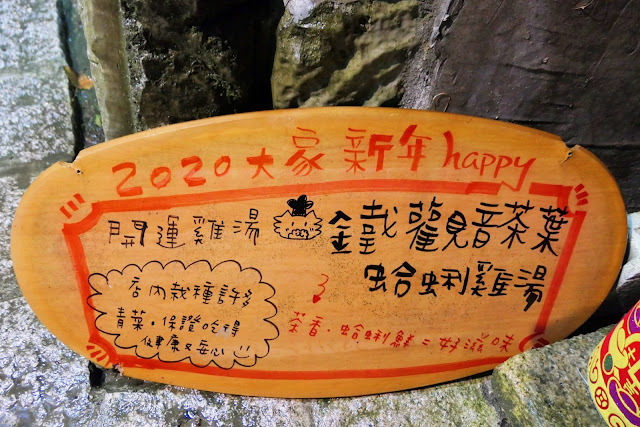 2020 大家新年 happy
開運雞湯
鐵觀音茶葉
蛤蜊雞湯
店內栽種許多
青菜。保證吃得
健康又安心
茶香。蛤蜊鮮=好滋味